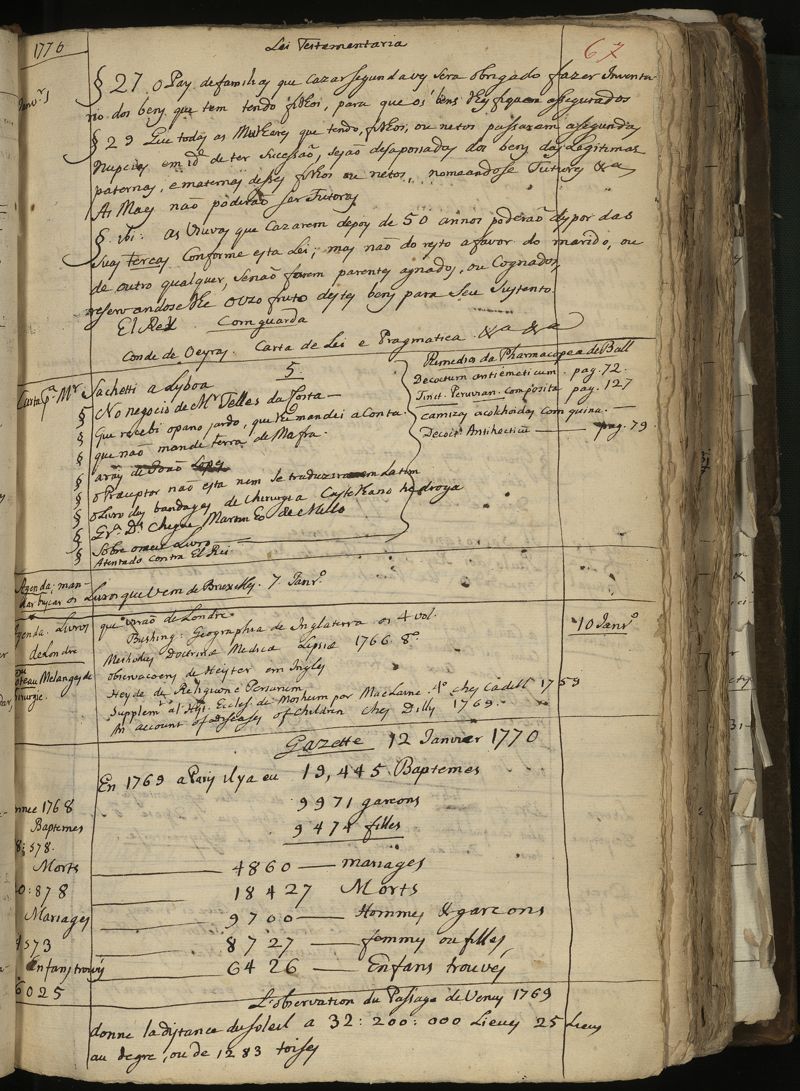 1770
Lei Testamentaria
67
Janvr.
§ 27. o Pay de familias que cazar segunda ves sera obrigado fazer Inventa-
rio dos bens que tem tendo filhos, para que os bens lhes fiquem assegurados
§ 29 Que todas as Mulheres que tendo filhos, ou netos passarem a segundas
Nupcias em id.e de ter sucessaõ, sejaõ desapossadas dos bens das Legitimas
paternas, e maternas desses filhos ou netos, nomeandose Tutores &a
As Maes não poderaõ ser Tutoras
§. ibi: as Viuvas que Cazarem depoys de 50 annos poderaõ dispor das
suas terças Conforme esta Lei; mas naõ do resto a favor do marido, ou
de outro qualquer, senaõ forem parentes agnados, ou Cognados,
reservandoselhe o uzo fruto destes bens para seu sustento
El Rey Com guarda
Conde de Oeyras. Carta de Lei e Pragmatica. &a &a
Carta pa. Mr. Sachetti a Lisboa 5.
§ No negocio de Mr Telles da Costa
§ Que recebi o pano pardo, que lhe mandei a Conta
§ que não mande terra de Mafra.
§
§ o Praeceptor não esta nem se traduzira em Latim
§ o Livro das bandages de Chirurgia Castelhano he droga
§
§ Sobre o meu Livro
§ Atentado contra El Rei
Remedios da Pharmacopea de Ball
Decoctum antiémeticum. pag. 72.
Tinct. Peruvian. composita pag. 127
camizas acolchoidas com quina.
Decoct. Antihectice pag. 79
Agenda: man-
dar buscar os Livros que Vem de Bruxellas. 7 Janro.
Agenda. Livros que viraõ de Londres
de Londre
Busching: Geographia de Inglaterra os 4 vol.
10 Janro.
Methodus Doctrinae Medica Lipsiae 1766 8o.
observacoens de Heyster em Ingles
Melanges de
Chirurgie.
Heyde de Religione Persarum
Supplemto. al Hys. Eccles. de Mosheim por MacLaine. 4o chez Cadell 1769
An account of Diseases of Children chez Dilly 1769.
Gazette 12 Janvier 1770
En 1769 a Paris il y a eu 19,445 Baptemes
9971 garcons
9474 filles
4860 — mariages
18427 Morts
9700 — Hommes & garcons
8727 — femmes ou filles
6426 — Enfans trouvés
Année 1768
Baptemes
8:578.
Morts
0:878
Mariages
4573
Enfans trouvés
6025
L'observation du Passage de Venus 1769
donne la distance du soleil a 32:200:000 Lieues 25 Lieus
au degre, ou de 1283 toises